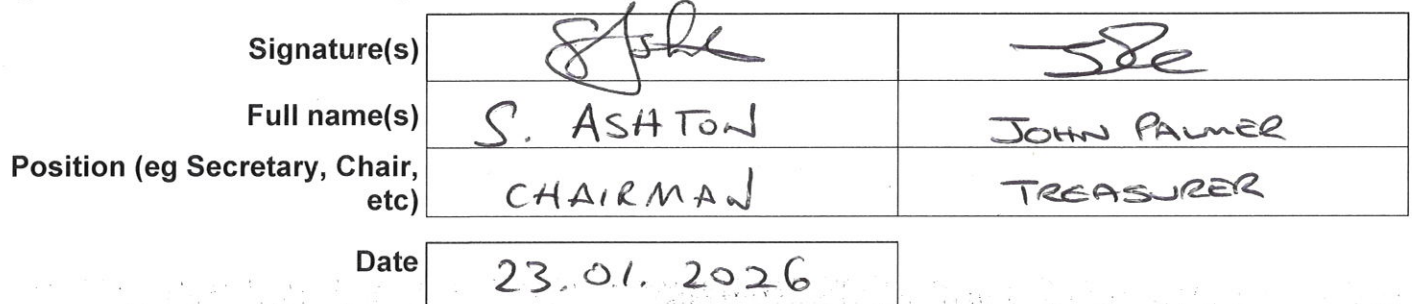 Signature(s)
Full name(s) S. ASHTON JOHN PALMER
Position (eg Secretary, Chair,
etc) CHAIRMAN TREASURER
Date 23.01.2026